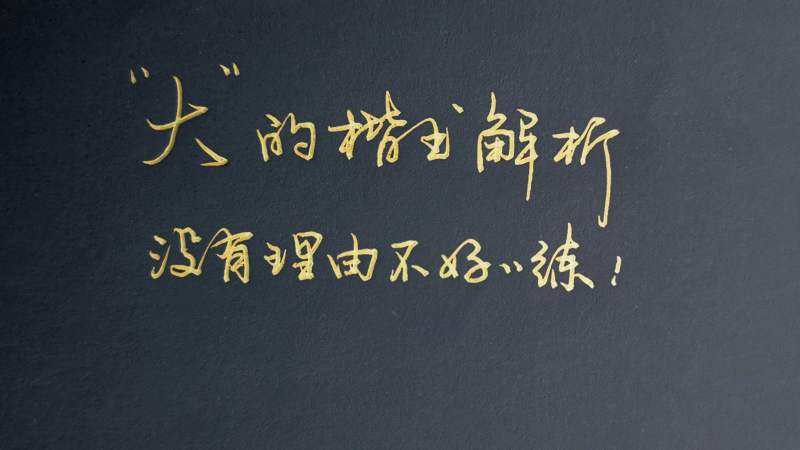 “大”的楷书解析
没有理由不好好练！